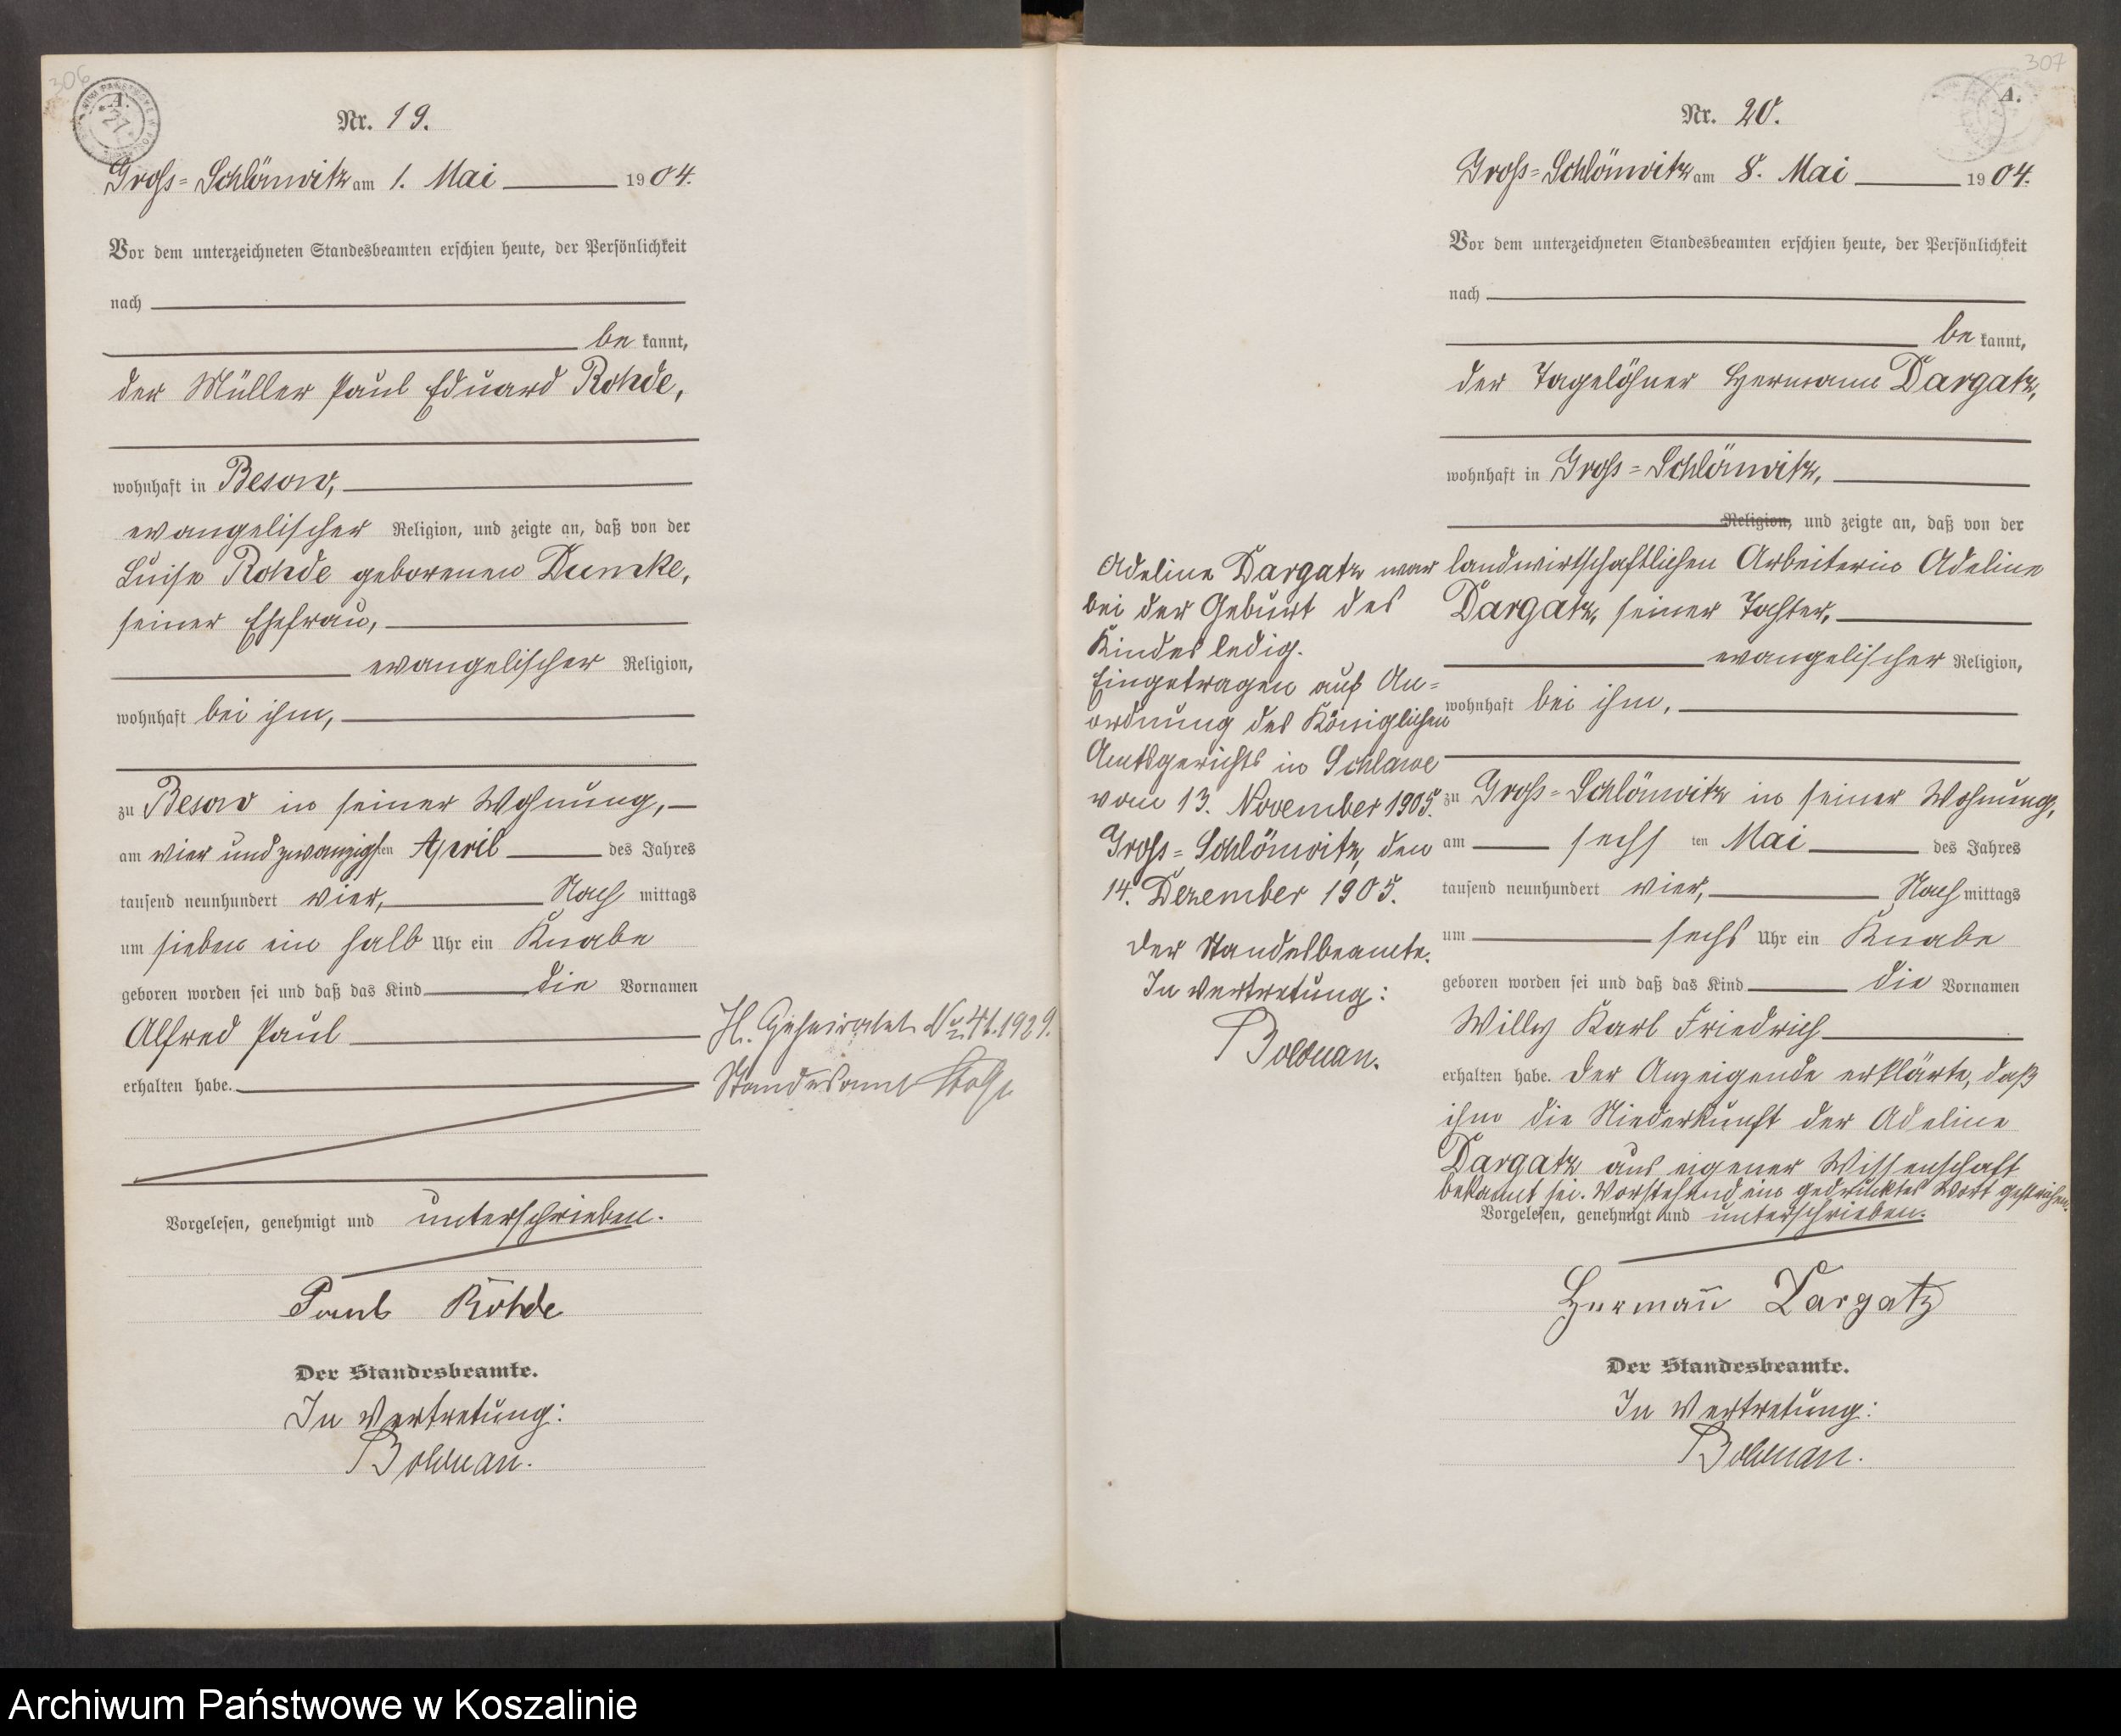 306
A.
Nr. 19.
Gross=Schlönwitz am 1. Mai 1904.
Vor dem unterzeichneten Standesbeamten erschien heute, der Persönlichkeit
nach
be kannt,
der Müller Paul Eduard Rohde,
wohnhaft in Besow,
evangelischer Religion, und zeigte an, daß von der
Luise Rohde geborenen Dumke,
seiner Ehefrau,
evangelischer Religion,
wohnhaft bei ihm,
zu Besow in seiner Wohnung,
am vier und zwanzigsten April des Jahres
tausend neunhundert vier, Nach mittags
um sieben ein halb Uhr ein Knabe
geboren worden sei und daß das Kind die Vornamen
Alfred Paul
erhalten habe.
Geheiratet 1929.
Standesamt
Vorgelesen, genehmigt und unterschrieben.
Paul Rohde
Der Standesbeamte.
In Vertretung:
Bolduan.
307
A.
Nr. 20.
Gross=Schlönwitz am 8. Mai 1904.
Vor dem unterzeichneten Standesbeamten erschien heute, der Persönlichkeit
nach
be kannt,
der Tagelöhner Hermann Dargatz,
wohnhaft in Gross=Schlönwitz,
Religion, und zeigte an, daß von der
landwirtschaftlichen Arbeiterin Adeline
Dargatz, seiner Tochter,
evangelischer Religion,
wohnhaft bei ihm,
zu Gross=Schlönwitz in seiner Wohnung,
am sechsten Mai des Jahres
tausend neunhundert vier, Nach mittags
um sechs Uhr ein Knabe
geboren worden sei und daß das Kind die Vornamen
Willy Karl Friedrich
erhalten habe. Der Anzeigende erklärte, daß
ihm die Niederkunft der Adeline
Dargatz aus eigener Wissenschaft
bekannt sei. Vorstehend ein gedrucktes Wort gestrichen.
Vorgelesen, genehmigt und unterschrieben.
Hermann Dargatz
Der Standesbeamte.
In Vertretung:
Bolduan.
Adeline Dargatz war
bei der Geburt des
Kindes ledig.
Eingetragen auf An=
ordnung des Königlichen
Amtsgerichts in Schlawe
vom 13. November 1905.
Gross=Schlönwitz, den
14. Dezember 1905.
Der Standesbeamte.
In Vertretung:
Bolduan.
Archiwum Państwowe w Koszalinie